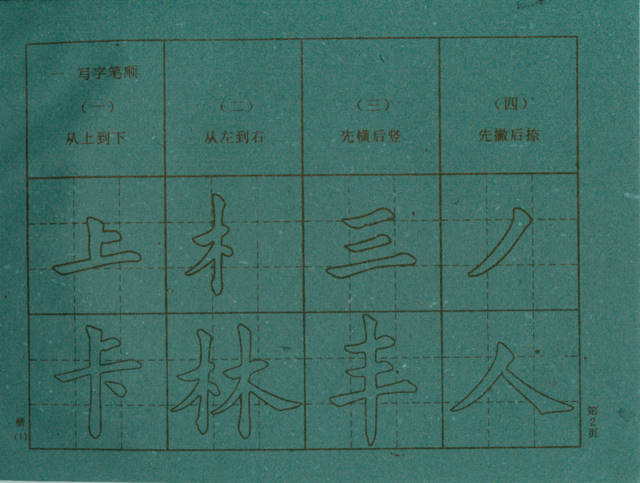 一 写字笔顺
(一)
从上到下
(二)
从左到右
(三)
先横后竖
(四)
先撇后捺
上
木
三
丿
卡
林
丰
人
(1)
第2页